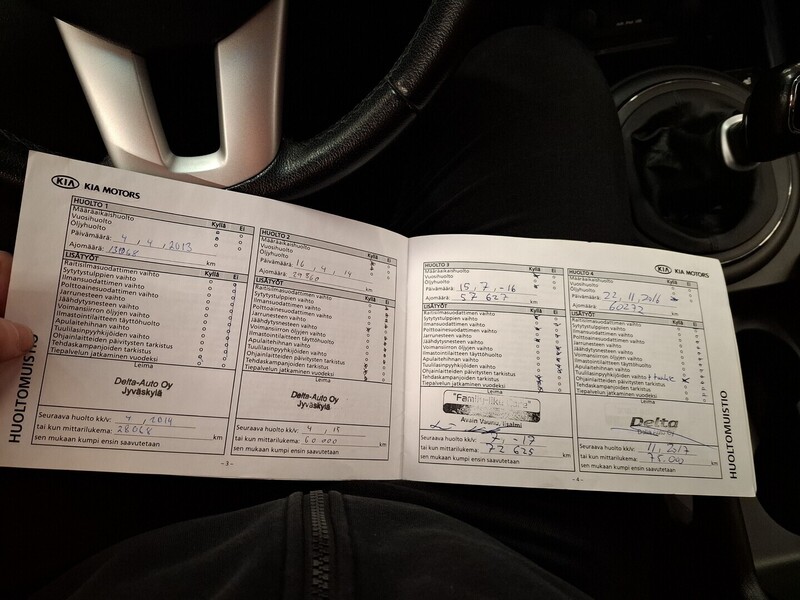 KIA KIA MOTORS
HUOLTO 1
Kyllä Ei
Määräaikaishuolto
Vuosihuolto
Öljyhuolto
Päivämäärä: 4, 4, 2013
Ajomäärä: km
LISÄTYÖT
Kyllä Ei
Raitisilmasuodattimen vaihto
Sytytystulppien vaihto
Ilmansuodattimen vaihto
Polttoainesuodattimen vaihto
Jarrunesteen vaihto
Jäähdytysnesteen vaihto
Voimansiirron öljyjen vaihto
Ilmastointilaitteen täyttöhuolto
Apulaitehihnan vaihto
Tuulilasinpyyhkijöiden vaihto
Ohjainlaitteiden päivitysten tarkistus
Tehdaskampanjoiden tarkistus
Tiepalvelun jatkaminen vuodeksi
Leima
Delta-Auto Oy
Jyväskylä
Seuraava huolto kk/v: 4, 2014
tai kun mittarilukema: 28068 km
sen mukaan kumpi ensin saavutetaan
- 3 -
HUOLTOMUISTIO
HUOLTO 2
Kyllä Ei
Määräaikaishuolto
Vuosihuolto
Öljyhuolto
Päivämäärä: 16, 4, 14
Ajomäärä: km
LISÄTYÖT
Kyllä Ei
Raitisilmasuodattimen vaihto
Sytytystulppien vaihto
Ilmansuodattimen vaihto
Polttoainesuodattimen vaihto
Jarrunesteen vaihto
Jäähdytysnesteen vaihto
Voimansiirron öljyjen vaihto
Ilmastointilaitteen täyttöhuolto
Apulaitehihnan vaihto
Tuulilasinpyyhkijöiden vaihto
Ohjainlaitteiden päivitysten tarkistus
Tehdaskampanjoiden tarkistus
Tiepalvelun jatkaminen vuodeksi
Leima
Delta-Auto Oy
Jyväskylä
Seuraava huolto kk/v: 4, 15
tai kun mittarilukema: 60 000 km
sen mukaan kumpi ensin saavutetaan
HUOLTO 3
Kyllä Ei
Määräaikaishuolto
Vuosihuolto
Öljyhuolto
Päivämäärä: 15, 7, -16
Ajomäärä: 57 627 km
LISÄTYÖT
Kyllä Ei
Raitisilmasuodattimen vaihto
Sytytystulppien vaihto
Ilmansuodattimen vaihto
Polttoainesuodattimen vaihto
Jarrunesteen vaihto
Jäähdytysnesteen vaihto
Voimansiirron öljyjen vaihto
Ilmastointilaitteen täyttöhuolto
Apulaitehihnan vaihto
Tuulilasinpyyhkijöiden vaihto
Ohjainlaitteiden päivitysten tarkistus
Tehdaskampanjoiden tarkistus
Tiepalvelun jatkaminen vuodeksi
Leima
Iisalmi
Seuraava huolto kk/v: 7, -17
tai kun mittarilukema: 72 625 km
sen mukaan kumpi ensin saavutetaan
KIA KIA MOTORS
HUOLTO 4
Kyllä Ei
Määräaikaishuolto
Vuosihuolto
Öljyhuolto
Päivämäärä: 22, 11, 2016
Ajomäärä: 60272 km
LISÄTYÖT
Kyllä Ei
Raitisilmasuodattimen vaihto
Sytytystulppien vaihto
Ilmansuodattimen vaihto
Polttoainesuodattimen vaihto
Jarrunesteen vaihto
Jäähdytysnesteen vaihto
Voimansiirron öljyjen vaihto
Ilmastointilaitteen täyttöhuolto
Apulaitehihnan vaihto
Tuulilasinpyyhkijöiden vaihto
Ohjainlaitteiden päivitysten tarkistus
Tehdaskampanjoiden tarkistus
Tiepalvelun jatkaminen vuodeksi
Leima
Delta
Seuraava huolto kk/v: 11, 2017
tai kun mittarilukema: 75.000 km
sen mukaan kumpi ensin saavutetaan
- 4 -
HUOLTOMUISTIO